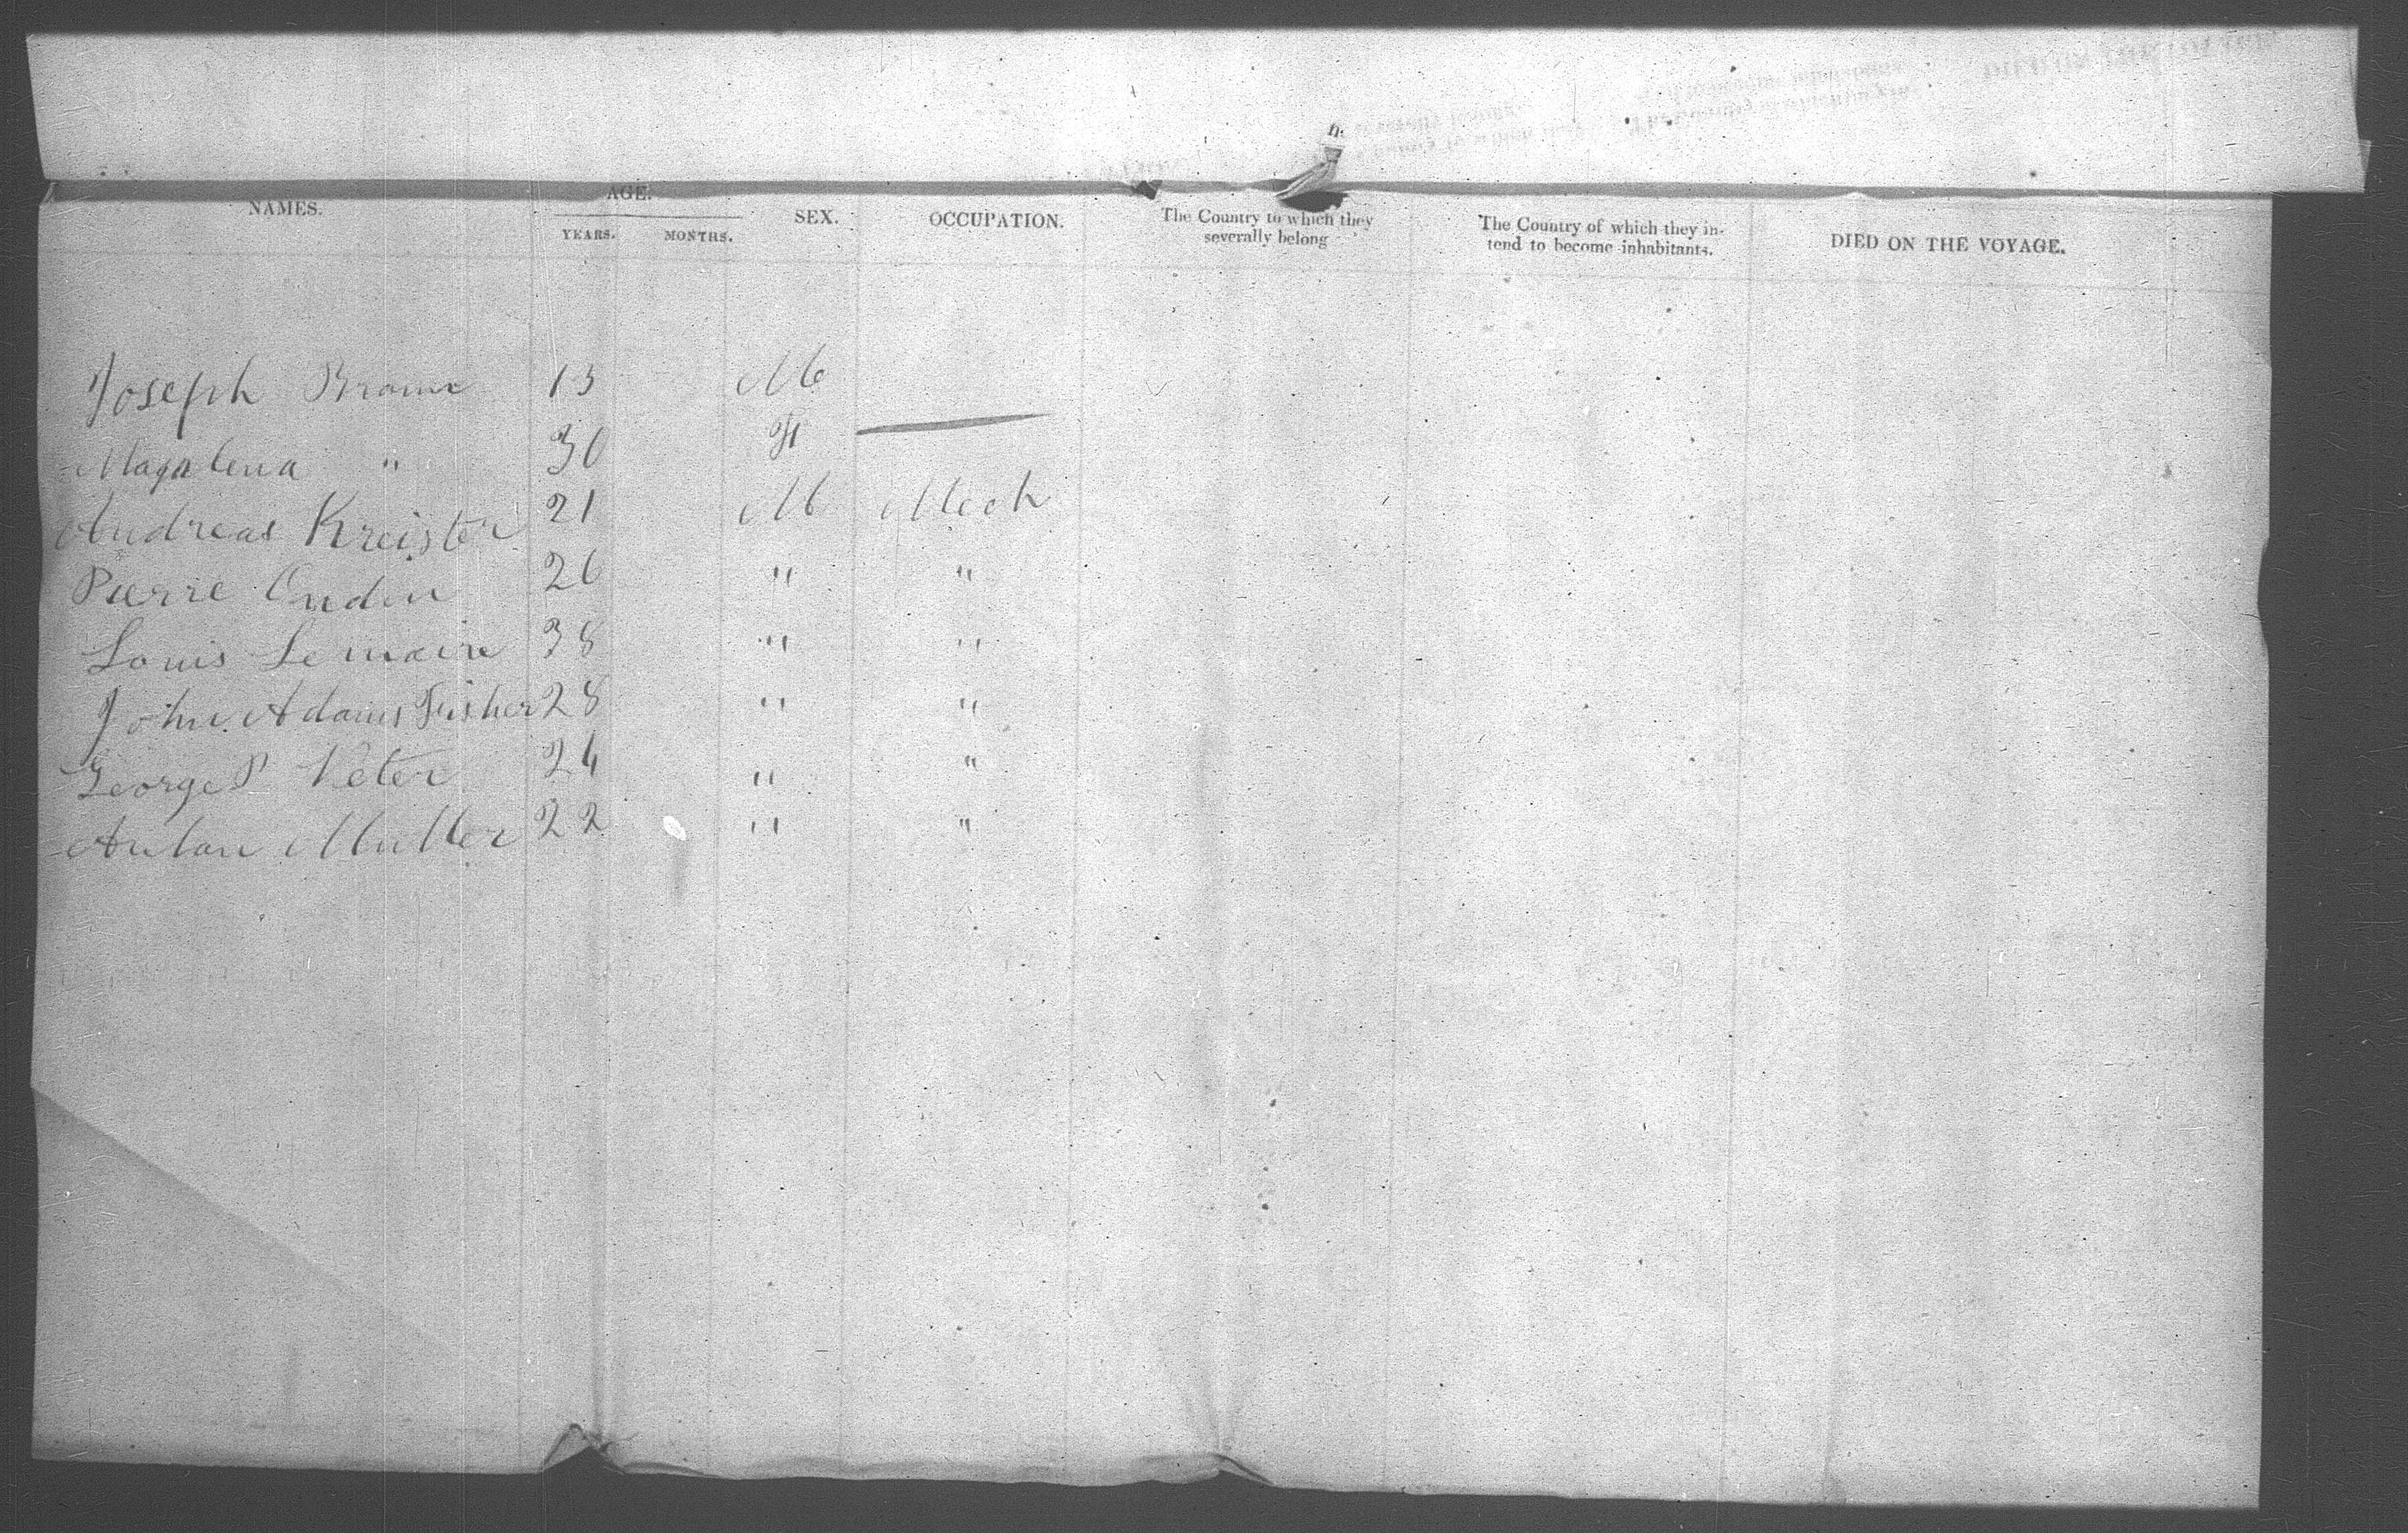 NAMES. AGE. SEX. OCCUPATION. The Country to which they severally belong The Country of which they in-tend to become inhabitants. DIED ON THE VOYAGE.
YEARS. MONTHS.
Joseph 13 M
Magdalena " 30 F
Andreas Kreister 21 M Mech
Pierre 26 " "
Louis Lemaire 38 " "
John Adams Fisher 28 " "
George P 24 " "
Anton Muller 22 " "